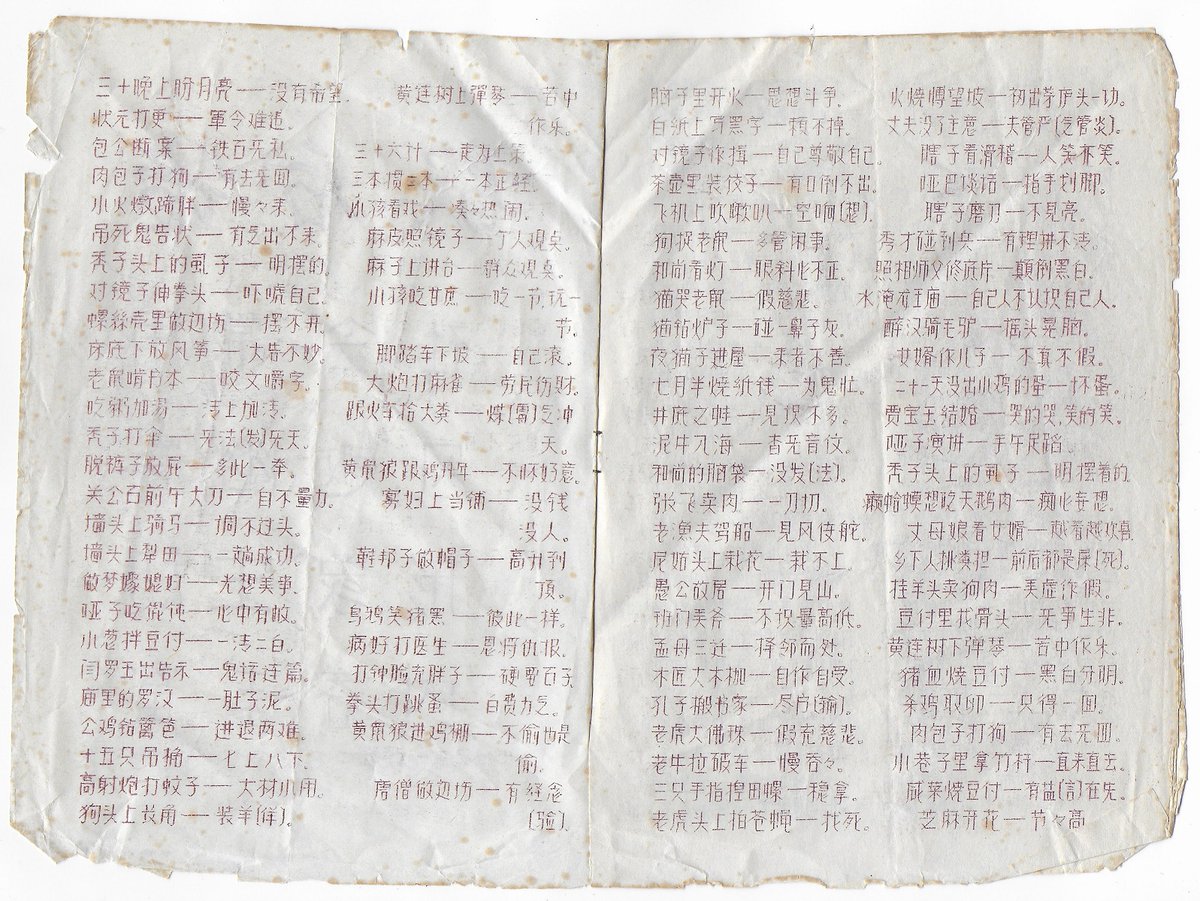 三十晚上盼月亮——没有希望.
状元打更——軍令难违。
包公断案——铁百旡私。
肉包子打狗——有去旡回。
小火燉蹄胖——慢々来。
吊死鬼告状——有乞出不来。
秃子头上的虱子——明摆的。
对镜子伸拳头——吓唬自己。
螺絲壳里做边场——摆不开
床底下放风筝——大告不妙。
老鼠啃书本——咬文嚼字。
吃粥加汤——清上加清。
秃子打伞——旡法〔发〕旡天。
脱裤子放屁——多此一举。
关公百前午大刀——自不量力。
墙头上骑马——调不过头。
墙头上犁田——一趟成功。
做梦嫁媳妇——光想美事。
哑子吃餛饨——心中有收。
小葱拌豆付——一清二白。
闫罗王出告示——鬼话连篇。
庙里的罗汉——一肚子泥。
公鸡钻篱笆——进退两难。
十五只吊捅——七上八下。
高射炮打蚊子——大材小用。
狗头上长角——装羊〔佯〕。
黄连树上彈琴——苦中
作乐。
三十六计——走为上策。
三本掼二本——一本正经。
小孩看戏——凑々热闹。
麻皮照镜子——个人观桌。
麻子上讲台——群众观桌。
小孩吃甘庶——吃一节,玩一
节。
脚踏车下坡——自己滚。
大炮打麻雀——劳民伤财。
跟火车拾大粪——煤〔霉〕乞冲
天。
黄鼠狼跟鸡拜年——不怀好意。
寡妇上当铺——没钱
没人。
鞋邦子做帽子——高升到
頂。
乌鸦笑猪黑——彼此一样。
病好打医生——恩将仇报。
打钟脸充胖子——硬要百子
拳头打跳蚤——白费力乞。
黄鼠狼进鸡棚——不偷也是
偷。
唐僧做边场——有经念
〔验〕.
脑子里开火—思想斗争.
白纸上写黑字—頼不掉。
对镜子作揖—自己尊敬自己。
茶壶里装佼子—有口倒不出。
飞机上吹嗽叭—空响〔想〕.
狗捉老鼠—多管闲事。
和尚看灯—眼斜心不正。
猫哭老鼠—假慈悲。
猫钻炉子—碰一鼻子灰。
夜猫子进屋—来者不善。
七月半烧紙钱—为鬼忙。
井底之蛙—見识不多。
泥牛入海—杳旡音仗。
和尚的脑袋—没发〔法〕。
张飞卖肉—一刀切。
老漁夫驾船—見风使舵。
尼姑头上栽花—栽不上。
愚公故居—开门見山。
班门弄斧—不识量高低。
孟母三迁—择邻而处。
木匠丈木枷—自作自受。
孔子搬书家—尽户〔输〕。
老虎大佛珠—假充慈悲。
老牛拉破车—慢吞々。
三只手指捏田螺—穏拿。
老虎头上拍苍蝇—找死。
火烧愽望坡—初出茅庐头一功。
丈夫没了主意—夫管严〔乞管炎〕。
瞎子看滑稽—人笑亦笑。
哑巴谈话—指手划脚。
瞎子磨刀—不見亮。
秀才碰到兵—有理讲不清。
照相师父修底片—顛倒黑白。
水淹龙王庙—自己人不认识自己人。
醉汉骑毛驴—摇头晃脑。
女婿作儿子—不真不假。
二十天没出小鸡的蛋—坏蛋。
贾宝玉结婚—哭的哭,笑的笑。
哑子演讲—手午足蹈。
秃子头上的虱子—明摆着的
癞蛤蟆想吃天鹅肉—痴心妄想。
丈母娘看女婿—越看越欢喜
乡下人挑粪担—前后都是屎〔死〕。
挂羊头卖狗肉—弄虚作假。
豆付里找骨头—旡事生非。
黄连树下弹琴—苦中作乐。
猪血烧豆付—黑白分明。
杀鸡取卵—只得一回。
肉包子打狗—有去旡回。
小巷子里拿竹杆—直来直去。
咸菜烧豆付—有盐〔言〕在先。
芝麻开花—节々高